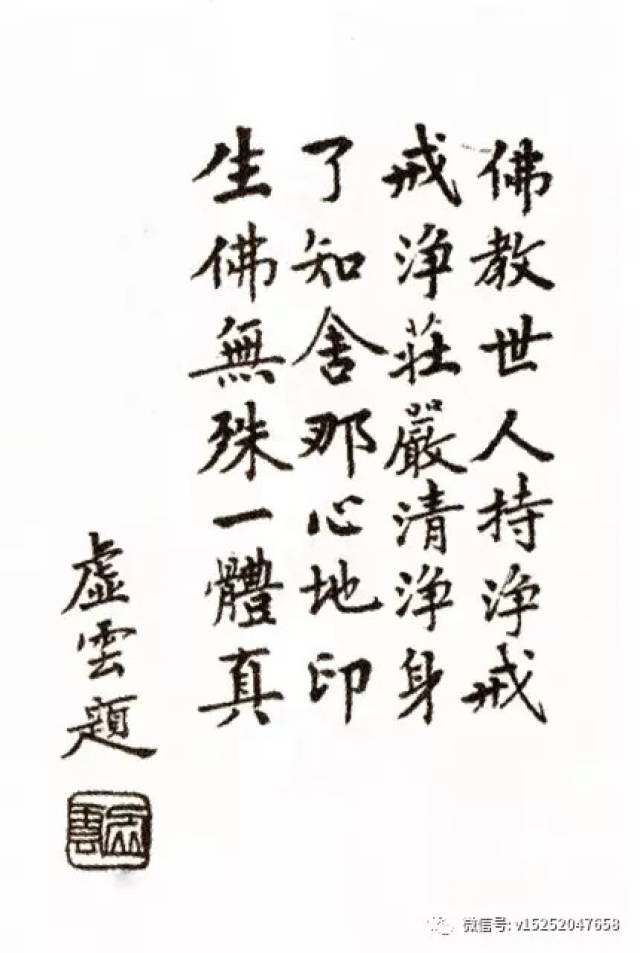 佛教世人持淨戒
戒淨莊嚴清淨身
了知舍那心地印
生佛無殊一體真
虛雲題
虛雲
微信号: v15252047658